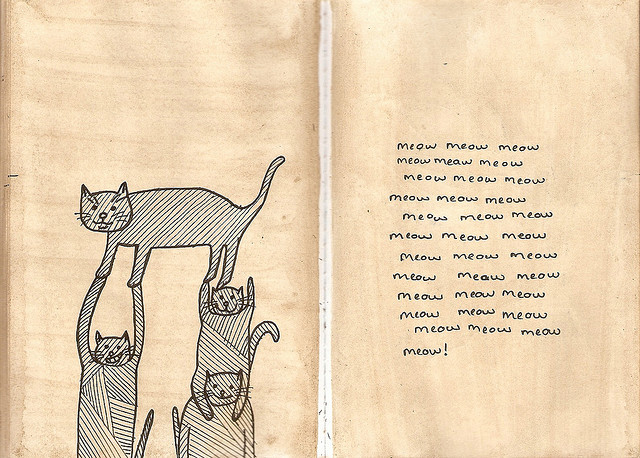 meow meow meow
meow meaw meow
meow meow meow
meow meow meow
meow meow meow
meow meow meow
meow meow meow
meow meaw meow
meow meow meow
meow meow meow
meow meow meow
meow!